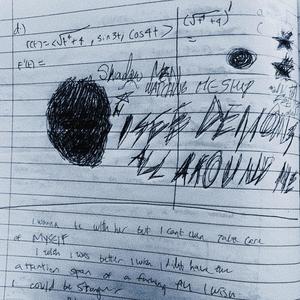 d)
r(t) = <√t⁴+4 , sin3t, cos4t>
r'(t) =
(√t⁴+4)'
=
Shadow MEN
WATCHING ME SLEEP
I SEE DEMONS
ALL AROUND ME
I wanna be with her but I can't even take care
of MYSELF
I wish I was better I wish I didn't have the
attention span of a fucking
I could be stronger